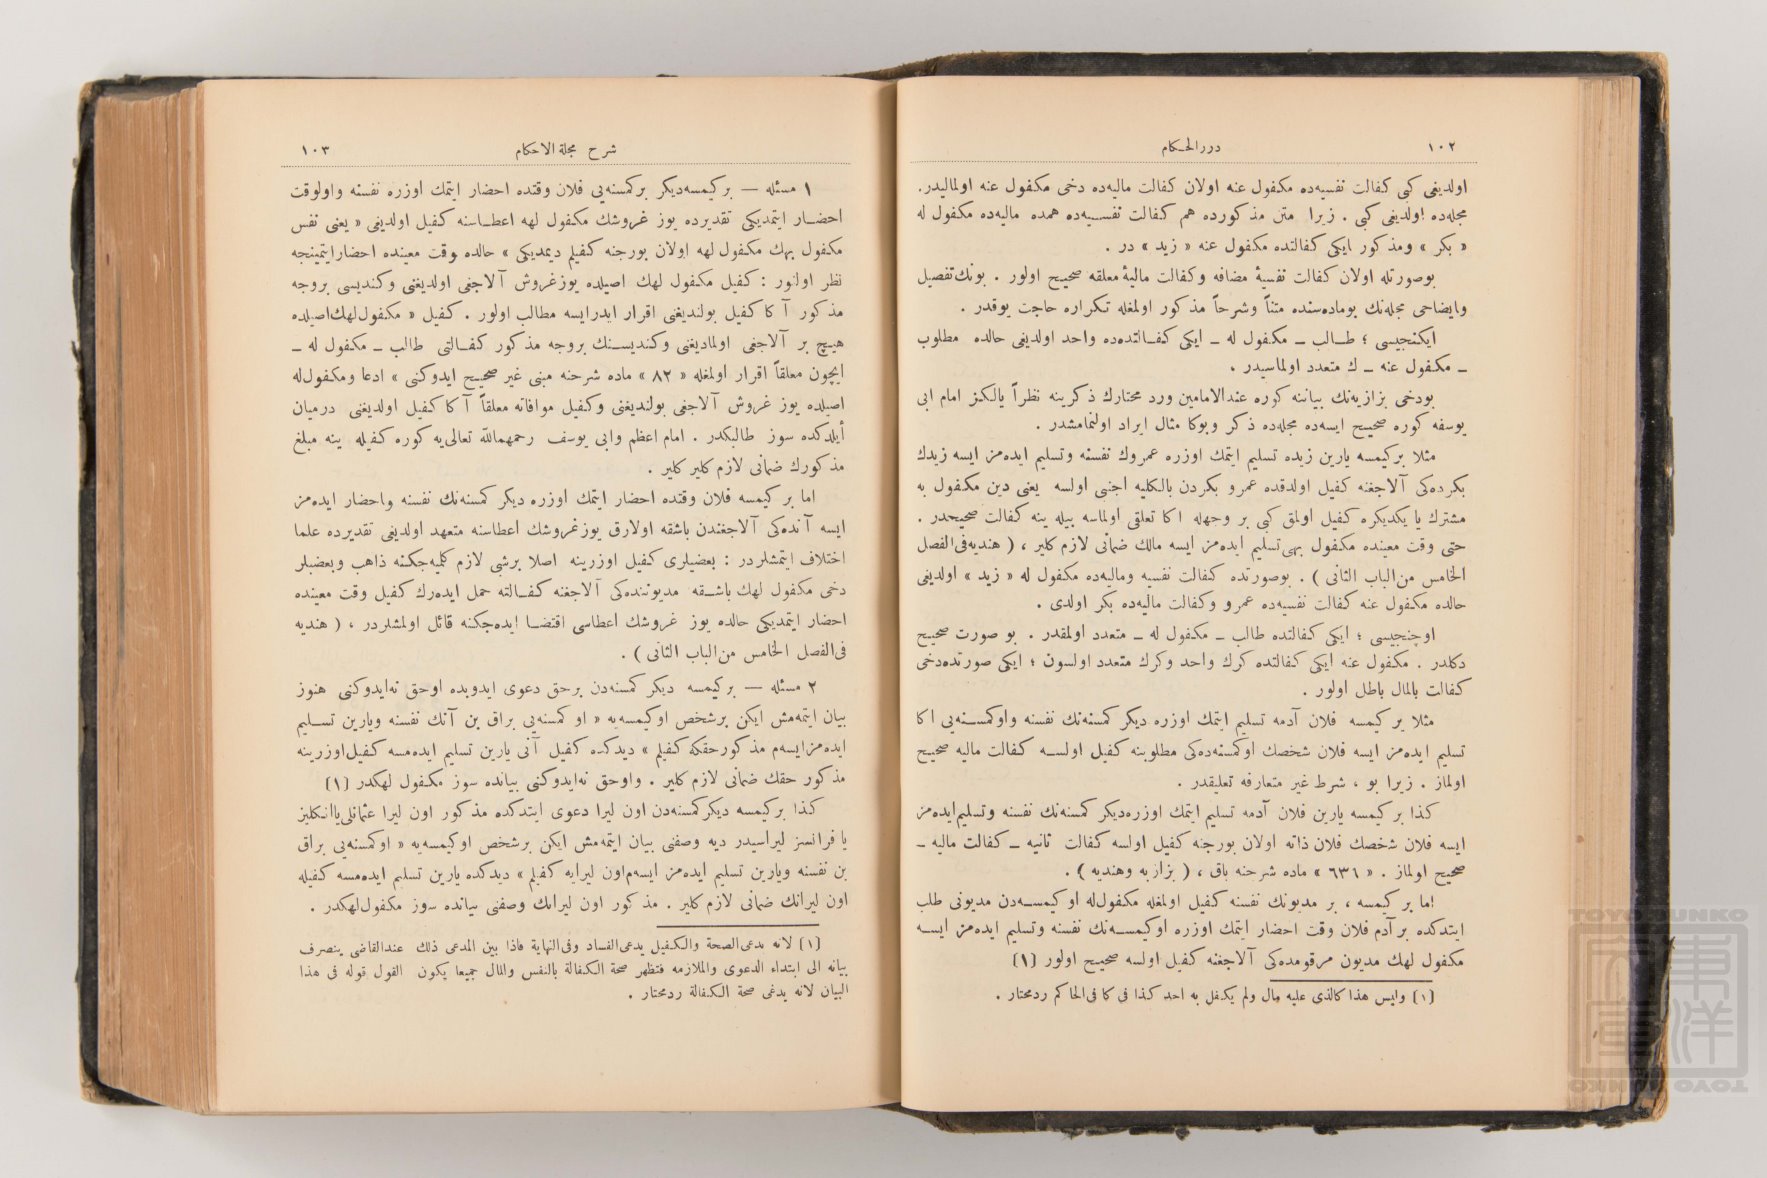 ١٠٢
دررالحكام
اولدیغی کبی کفالت نفسیه‌ده مکفول عنه اولان کفالت مالیه‌ده دخی مکفول عنه اولمالیدر.
مجله‌ده اولدیغی کبی . زیرا متن مذکورده هم کفالت نفسیه‌ده همده مالیه‌ده مکفول له
« بکر » ومذکور ایکی کفالتده مکفول عنه « زید » در .
بوصورتله اولان کفالت نفسیۀ مضافه وکفالت مالیۀ معلقه صحیح اولور . بونك تفصیل
وایضاحی مجله‌نك بوماده‌سنده متناً وشرحاً مذکور اولمغله تکراره حاجت یوقدر .
ایکنجیسی ؛ طالب ـ مکفول له ـ ایکی کفالتده‌ده واحد اولدیغی حالده مطلوب
ـ مکفول عنه ـ ك متعدد اولماسیدر .
بودخی بزازیه‌نك بیاننه کوره عندالامامین ورد محتارك ذکرینه نظراً یالکز امام ابی
یوسفه کوره صحیح ایسه‌ده مجله‌ده ذکر وبوکا مثال ایراد اولنمامشدر .
مثلا برکیمسه یارین زیده تسلیم ایتمك اوزره عمروك نفسنه وتسلیم ایده‌مز ایسه زیدك
بکرده‌کی آلاجغنه کفیل اولدقده عمرو بکردن بالکلیه اجنبی اولسه یعنی دین مکفول به
مشترك یا یکدیکره کفیل اولمق کبی بر وجهله اکا تعلقی اولماسه بیله ینه کفالت صحیحدر .
حتی وقت معینده مکفول بهی تسلیم ایده‌مز ایسه مالك ضمانی لازم کلیر ، ( هندیه فی‌الفصل
الخامس من‌الباب الثانی ) . بوصورتده کفالت نفسیه ومالیه‌ده مکفول له « زید » اولدیغی
حالده مکفول عنه کفالت نفسیه‌ده عمرو وکفالت مالیه‌ده بکر اولدی .
اوچنجیسی ؛ ایکی کفالتده طالب ـ مکفول له ـ متعدد اولمقدر . بو صورت صحیح
دکلدر . مکفول عنه ایکی کفالتده کرك واحد وکرك متعدد اولسون ؛ ایکی صورتده‌دخی
کفالت بالمال باطل اولور .
مثلا بر کیمسه فلان آدمه تسلیم ایتمك اوزره دیکر کمسنه‌نك نفسنه واوکمسنه‌یی اکا
تسلیم ایده‌مز ایسه فلان شخصك اوکمسنه‌ده‌کی مطلوبنه کفیل اولسه کفالت مالیه صحیح
اولماز . زیرا بو ، شرط غیر متعارفه تعلیقدر .
کذا بر کیمسه یارین فلان آدمه تسلیم ایتمك اوزره‌دیکر کمسنه‌نك نفسنه وتسلیم‌ایده‌مز
ایسه فلان شخصك فلان ذاته اولان بورجنه کفیل اولسه کفالت ثانیه ـ کفالت مالیه ـ
صحیح اولماز . « ٦٣٦ » ماده شرحنه باق ، ( بزازیه وهندیه ) .
اما بر کیمسه ، بر مدیونك نفسنه کفیل اولمغله مکفول‌له او کیمسه‌دن مدیونی طلب
ایتدکده برآدم فلان وقت احضار ایتمك اوزره اوکیمسه‌نك نفسنه وتسلیم ایده‌مز ایسه
مکفول لهك مدیون مرقومده‌کی آلاجغنه کفیل اولسه صحیح اولور (١)
(١) ولیس هذا کالذی علیه مال ولم یکفل به احد کذا فی کافی‌الحاکم ردمحتار .
شرح مجلة الاحکام
١٠٣
١ مسئله — برکیمسه‌دیکر برکمسنه‌یی فلان وقتده احضار ایتمك اوزره نفسنه واولوقت
احضار ایتمدیکی تقدیرده یوز غروشك مکفول لهه اعطاسنه کفیل اولدیغی « یعنی نفس
مکفول بهك مکفول لهه اولان بورجنه کفیلم دیمدیکی » حالده وقت معینده احضارایتمینجه
نظر اولنور : کفیل مکفول لهك اصیلده یوزغروش آلاجغی اولدیغنی وکندیسی بروجه
مذکور آ کا کفیل بولندیغنی اقرار ایدرایسه مطالب اولور . کفیل « مکفول‌لهك‌اصیلده
هیچ بر آلاجغی اولمادیغنی وکندیسنك بروجه مذکور کفالتی طالب ـ مکفول له ـ
ایچون معلقاً اقرار اولمغله « ٨٢ » ماده شرحنه مبنی غیر صحیح ایدوکنی » ادعا ومکفول‌له
اصیلده یوز غروش آلاجغی بولندیغنی وکفیل موافاته معلقاً آ کا کفیل اولدیغنی درمیان
أیلدکده سوز طالبکدر . امام اعظم وابی یوسف رحمهماالله تعالی‌یه کوره کفیله ینه مبلغ
مذکورك ضمانی لازم کلیر کلیر .
اما بر کیمسه فلان وقتده احضار ایتمك اوزره دیکر کمسنه‌نك نفسنه واحضار ایده‌مز
ایسه آنده‌کی آلاجغندن باشقه اولارق یوزغروشك اعطاسنه متعهد اولدیغی تقدیرده علما
اختلاف ایتمشلردر : بعضیلری کفیل اوزرینه اصلا برشی لازم کلمیه‌جکنه ذاهب وبعضیلر
دخی مکفول لهك باشقه مدیوننده‌کی آلاجغنه کفالته حمل ایده‌رك کفیل وقت معینده
احضار ایتمدیکی حالده یوز غروشك اعطاسی اقتضا ایده‌جکنه قائل اولمشلردر ، ( هندیه
فی‌الفصل الخامس من‌الباب الثانی ) .
٢ مسئله — برکیمسه دیکر کمسنه‌دن برحق دعوی ایدوبده اوحق نه‌ایدوکنی هنوز
بیان ایتمه‌مش ایکن برشخص اوکیمسه‌یه « او کمسنه‌یی براق بن آنك نفسنه ویارین تسلیم
ایده‌مزایسه‌م مذکورحقکه کفیلم » دیدکده کفیل آنی یارین تسلیم ایده‌مسه کفیل‌اوزرینه
مذکور حقك ضمانی لازم کلیر . واوحق نه‌ایدوکنی بیانده سوز مکفول لهکدر (١)
کذا برکیمسه دیکرکمسنه‌دن اون لیرا دعوی ایتدکده مذکور اون لیرا عثمانلی‌یاانکلیز
یا فرانسز لیراسیدر دیه وصفنی بیان ایتمه‌مش ایکن برشخص اوکیمسه‌یه « اوکمسنه‌یی براق
بن نفسنه ویارین تسلیم ایده‌مز ایسه‌م‌اون لیرایه کفیلم » دیدکده یارین تسلیم ایده‌مسه کفیله
اون لیرانك ضمانی لازم کلیر . مذکور اون لیرانك وصفنی بیانده سوز مکفول‌لهکدر .
(١) لانه یدعی‌الصحة والکفیل یدعی‌الفساد وفی‌النهایة فاذا بین المدعی ذلك عندالقاضی ینصرف
بیانه الی ابتداء الدعوی والملازمه فتظهر صحة الکفالة بالنفس والمال جمیعا یکون القول قوله فی هذا
البیان لانه یدعی صحة الکفالة ردمحتار .
TOYO BUNKO
東洋文庫
TOYO BUNKO